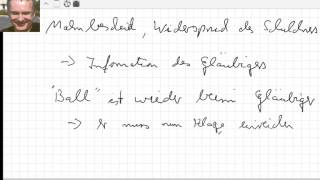 Mahnbescheid, Widerspruch des Schuldners
→ Information des Gläubigers
"Ball" ist wieder beim Gläubiger
→ Er muss nun Klage einreichen